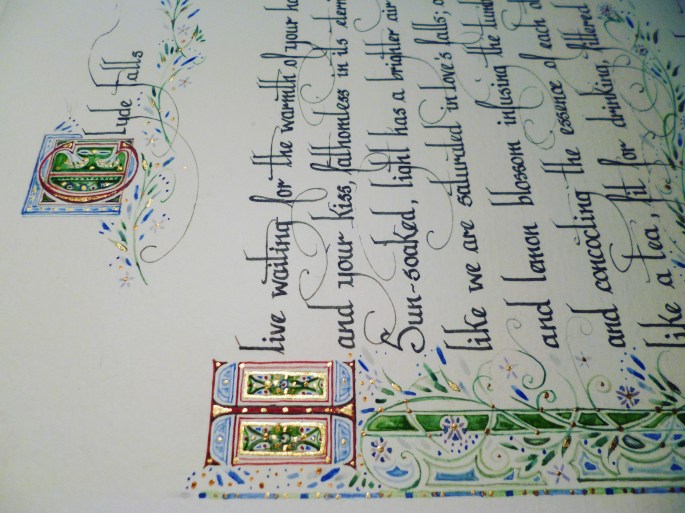 Clyde Falls
I live waiting for the warmth of your
and your kiss, fathomless in its
Sun-soaked, light has a brighter air
like we are saturated in love's falls;
and lemon blossom infusing the
and concocting the essence of each
like a tea, fit for drinking, filtered